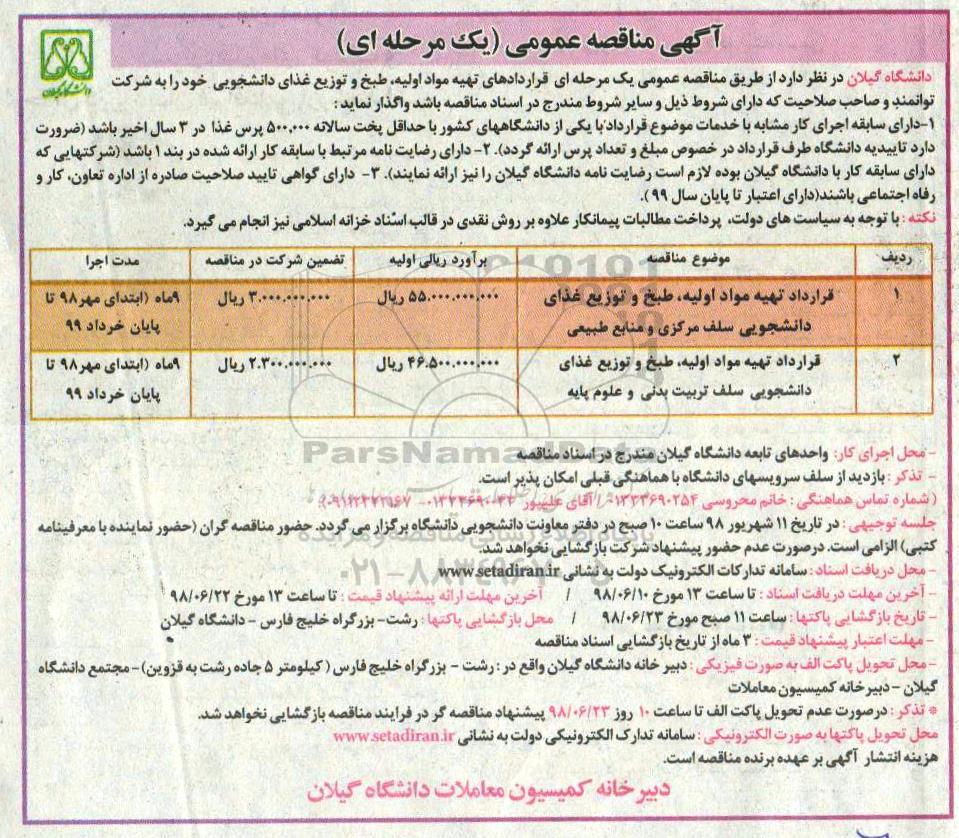 آگهی مناقصه عمومی (یک مرحله ای)
دانشگاه گیلان
دانشگاه گیلان در نظر دارد از طریق مناقصه عمومی یک مرحله ای قراردادهای تهیه مواد اولیه، طبخ و توزیع غذای دانشجویی خود را به شرکت
توانمند و صاحب صلاحیت که دارای شروط ذیل و سایر شروط مندرج در اسناد مناقصه باشد واگذار نماید :
۱-دارای سابقه اجرای کار مشابه با خدمات موضوع قرارداد با یکی از دانشگاههای کشور با حداقل پخت سالانه ۵۰۰,۰۰۰ پرس غذا در ۳ سال اخیر باشد (ضرورت
دارد تاییدیه دانشگاه طرف قرارداد در خصوص مبلغ و تعداد پرس ارائه گردد). ۲- دارای رضایت نامه مرتبط با سابقه کار ارائه شده در بند ۱ باشد (شرکتهایی که
دارای سابقه کار با دانشگاه گیلان بوده لازم است رضایت نامه دانشگاه گیلان را نیز ارائه نمایند). ۳- دارای گواهی تایید صلاحیت صادره از اداره تعاون، کار و
رفاه اجتماعی باشند(دارای اعتبار تا پایان سال ۹۹ ).
نکته : با توجه به سیاست های دولت، پرداخت مطالبات پیمانکار علاوه بر روش نقدی در قالب اسناد خزانه اسلامی نیز انجام می گیرد.
ردیف موضوع مناقصه برآورد ریالی اولیه تضمین شرکت در مناقصه مدت اجرا
۱ قرارداد تهیه مواد اولیه، طبخ و توزیع غذای ۵۵.۰۰۰.۰۰۰.۰۰۰ ریال ۳.۰۰۰.۰۰۰.۰۰۰ ریال ۹ماه (ابتدای مهر۹۸ تا
دانشجویی سلف مرکزی و منابع طبیعی پایان خرداد ۹۹
۲ قرارداد تهیه مواد اولیه، طبخ و توزیع غذای ۴۶.۵۰۰.۰۰۰.۰۰۰ ریال ۲.۳۰۰.۰۰۰.۰۰۰ ریال ۹ماه (ابتدای مهر۹۸ تا
دانشجویی سلف تربیت بدنی و علوم پایه پایان خرداد ۹۹
ParsNamadData
- محل اجرای کار: واحدهای تابعه دانشگاه گیلان مندرج در اسناد مناقصه
- تذکر : بازدید از سلف سرویسهای دانشگاه با هماهنگی قبلی امکان پذیر است.
( شماره تماس هماهنگی : خانم محروسی ۰۱۳۳۳۶۹۰۲۵۴ / آقای علیپور
جلسه توجیهی : در تاریخ ۱۱ شهریور ۹۸ ساعت ۱۰ صبح در دفتر معاونت دانشجویی دانشگاه برگزار می گردد. حضور مناقصه گران (حضور نماینده با معرفینامه
کتبی) الزامی است. درصورت عدم حضور پیشنهاد شرکت بازگشایی نخواهد شد.
- محل دریافت اسناد : سامانه تدارکات الکترونیک دولت به نشانی www.setadiran.ir
- آخرین مهلت دریافت اسناد : تا ساعت ۱۳ مورخ ۹۸/۰۶/۱۰ / آخرین مهلت ارائه پیشنهاد قیمت : تا ساعت ۱۳ مورخ ۹۸/۰۶/۲۲
- تاریخ بازگشایی پاکتها : ساعت ۱۱ صبح مورخ ۹۸/۰۶/۲۳ / محل بازگشایی پاکتها : رشت- بزرگراه خلیج فارس - دانشگاه گیلان
- مهلت اعتبار پیشنهاد قیمت : ۳ ماه از تاریخ بازگشایی اسناد مناقصه
- محل تحویل پاکت الف به صورت فیزیکی : دبیر خانه دانشگاه گیلان واقع در : رشت - بزرگراه خلیج فارس ( کیلومتر ۵ جاده رشت به قزوین)- مجتمع دانشگاه
گیلان - دبیرخانه کمیسیون معاملات
* تذکر : درصورت عدم تحویل پاکت الف تا ساعت ۱۰ روز ۹۸/۰۶/۲۳ پیشنهاد مناقصه گر در فرایند مناقصه بازگشایی نخواهد شد.
محل تحویل پاکتها به صورت الکترونیکی : سامانه تدارک الکترونیکی دولت به نشانی www.setadiran.ir
هزینه انتشار آگهی بر عهده برنده مناقصه است.
دبیرخانه کمیسیون معاملات دانشگاه گیلان